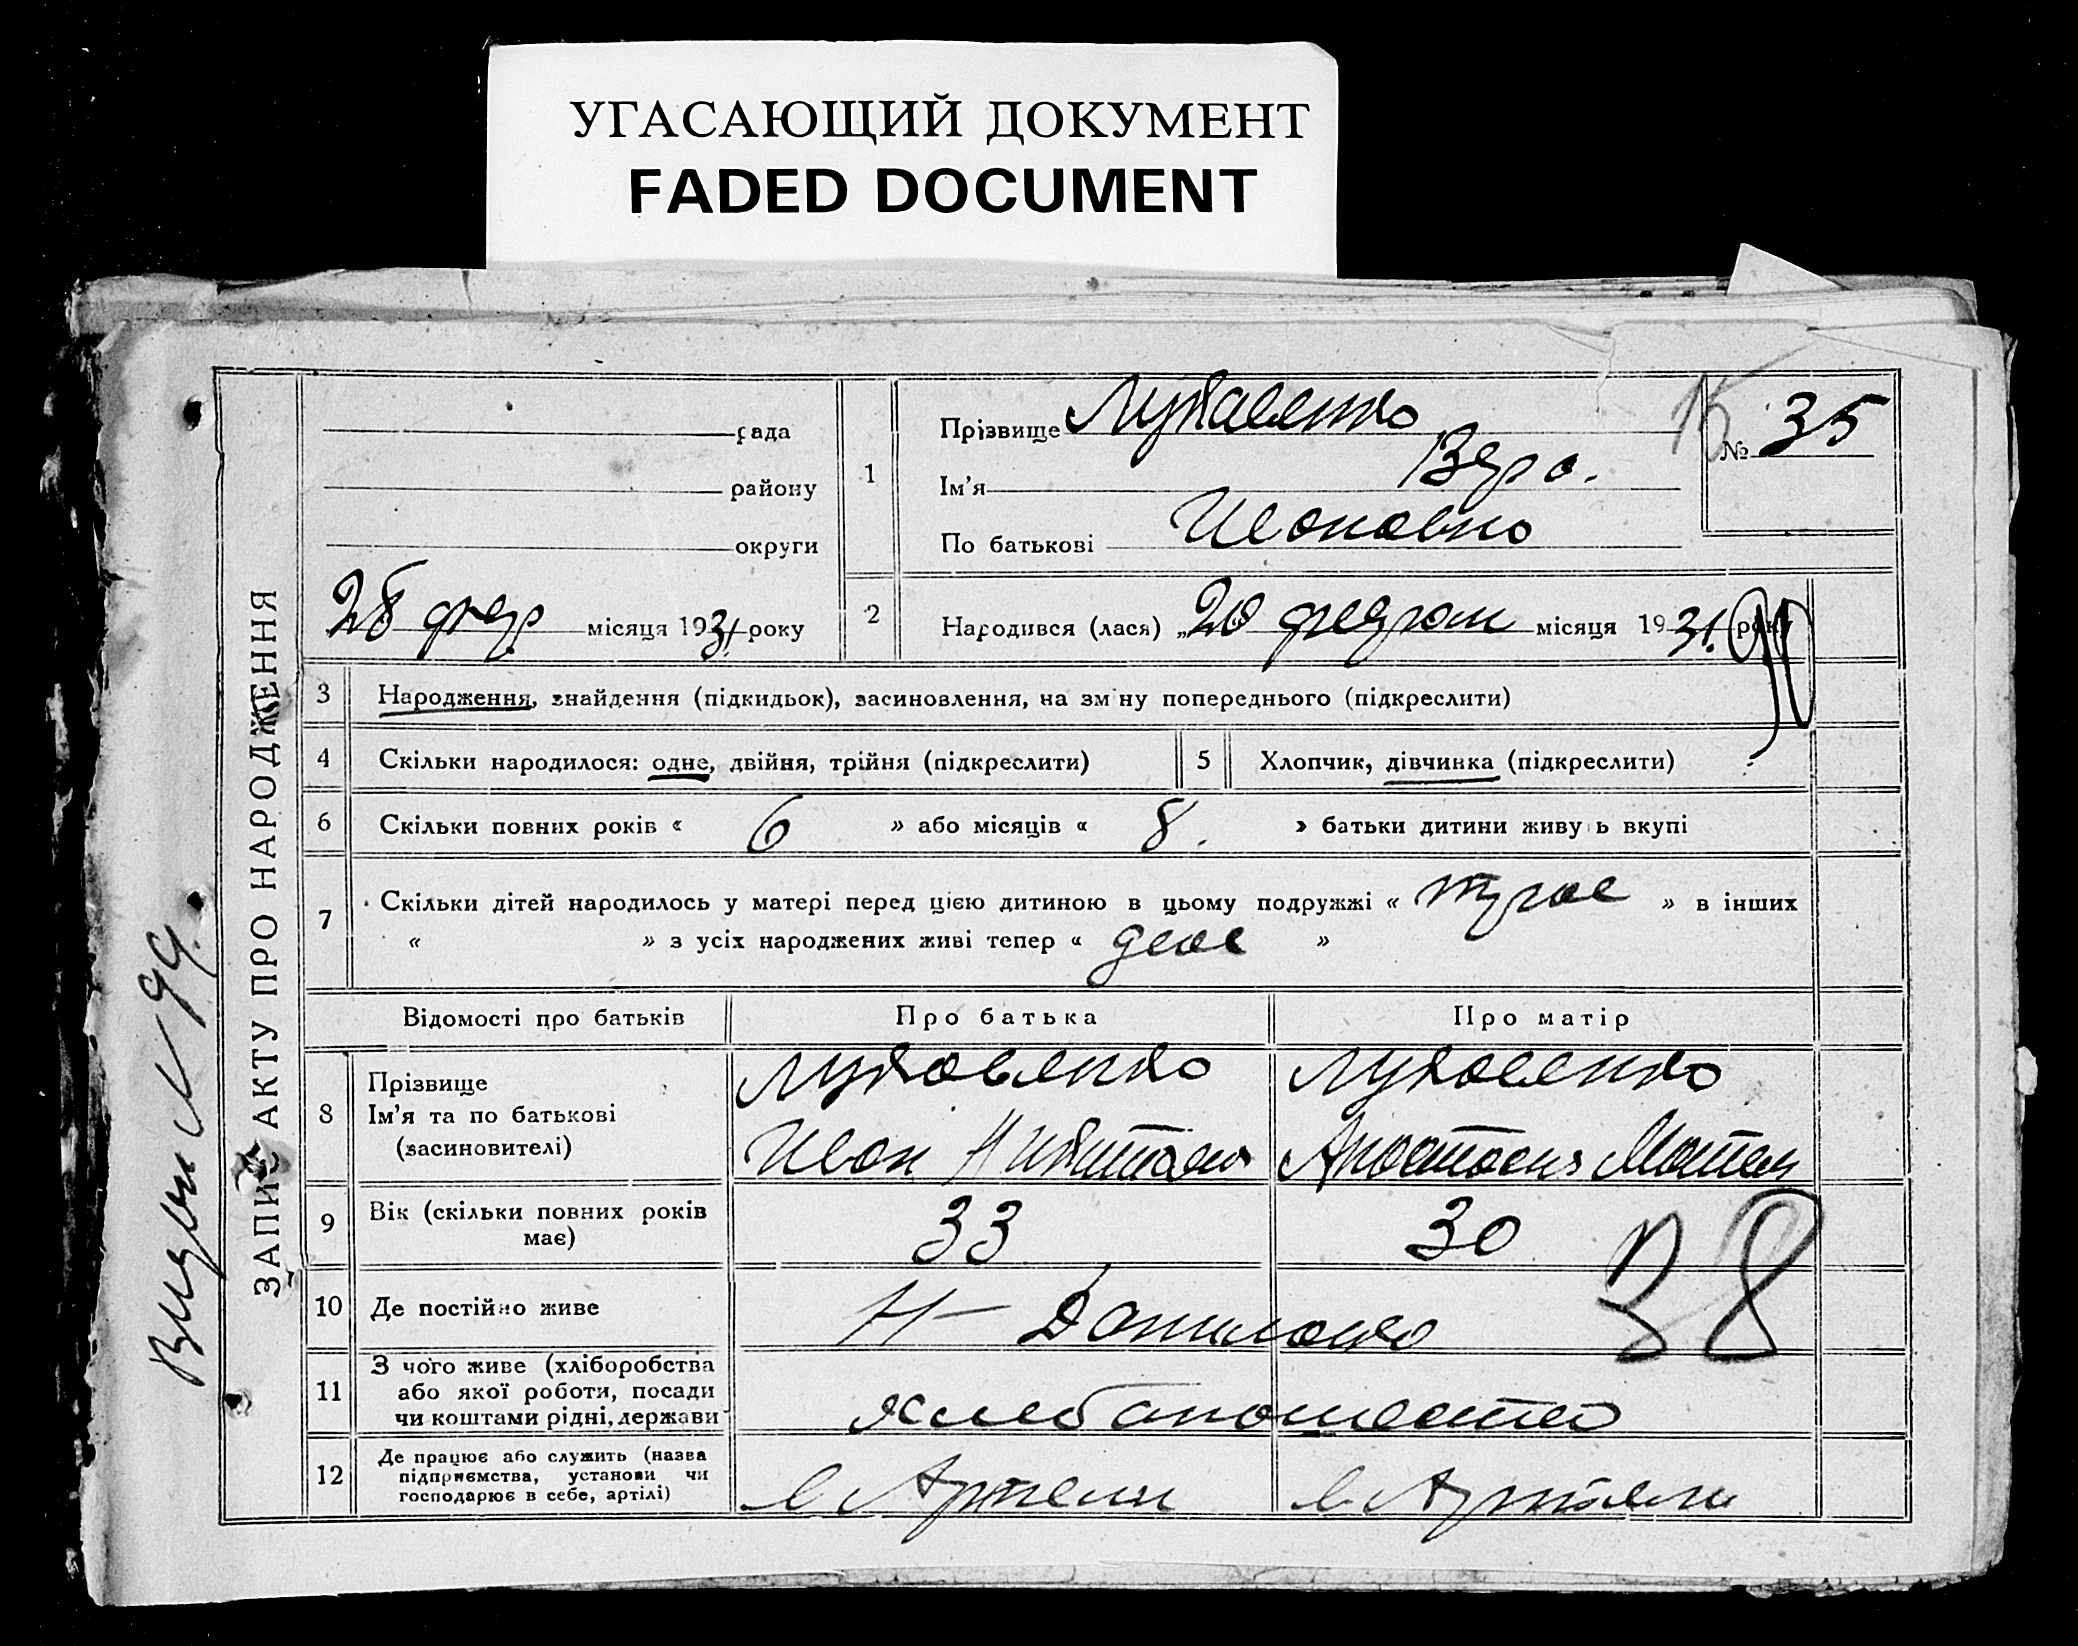 УГАСАЮЩИЙ ДОКУМЕНТ
FADED DOCUMENT
ЗАПИС АКТУ ПРО НАРОДЖЕННЯ
рада
району
округи
28 февр місяця 1931 року
1
Прізвище Луковенко
Ім'я Вера.
По батькові Ивановна
№ 35
15
2
Народився (лася) „20 феврал місяця 1931. року
3 Народження, знайдення (підкидьок), засиновлення, на зміну попереднього (підкреслити)
4 Скільки народилося: одне, двійня, трійня (підкреслити)
5 Хлопчик, дівчинка (підкреслити)
6 Скільки повних років « 6 » або місяців « 8. » батьки дитини живуть вкупі
7 Скільки дітей народилось у матері перед цією дитиною в цьому подружжі « » в інших
« » з усіх народжених живі тепер « двое »
Відомості про батьків
Про батька
Про матір
8 Прізвище
Ім'я та по батькові
(засиновителі)
Луковенко
Иван Никитович
Луковенко
Анастасия Матвеи
9 Вік (скільки повних років
має)
33
30
38
10 Де постійно живе
Н-Даниловка
11 З чого живе (хліборобства
або якої роботи, посади
чи коштами рідні, держави
хлебапошество
12 Де працює або служить (назва
підприємства, установи чи
господарює в себе, артілі)
в Артели
в Артели